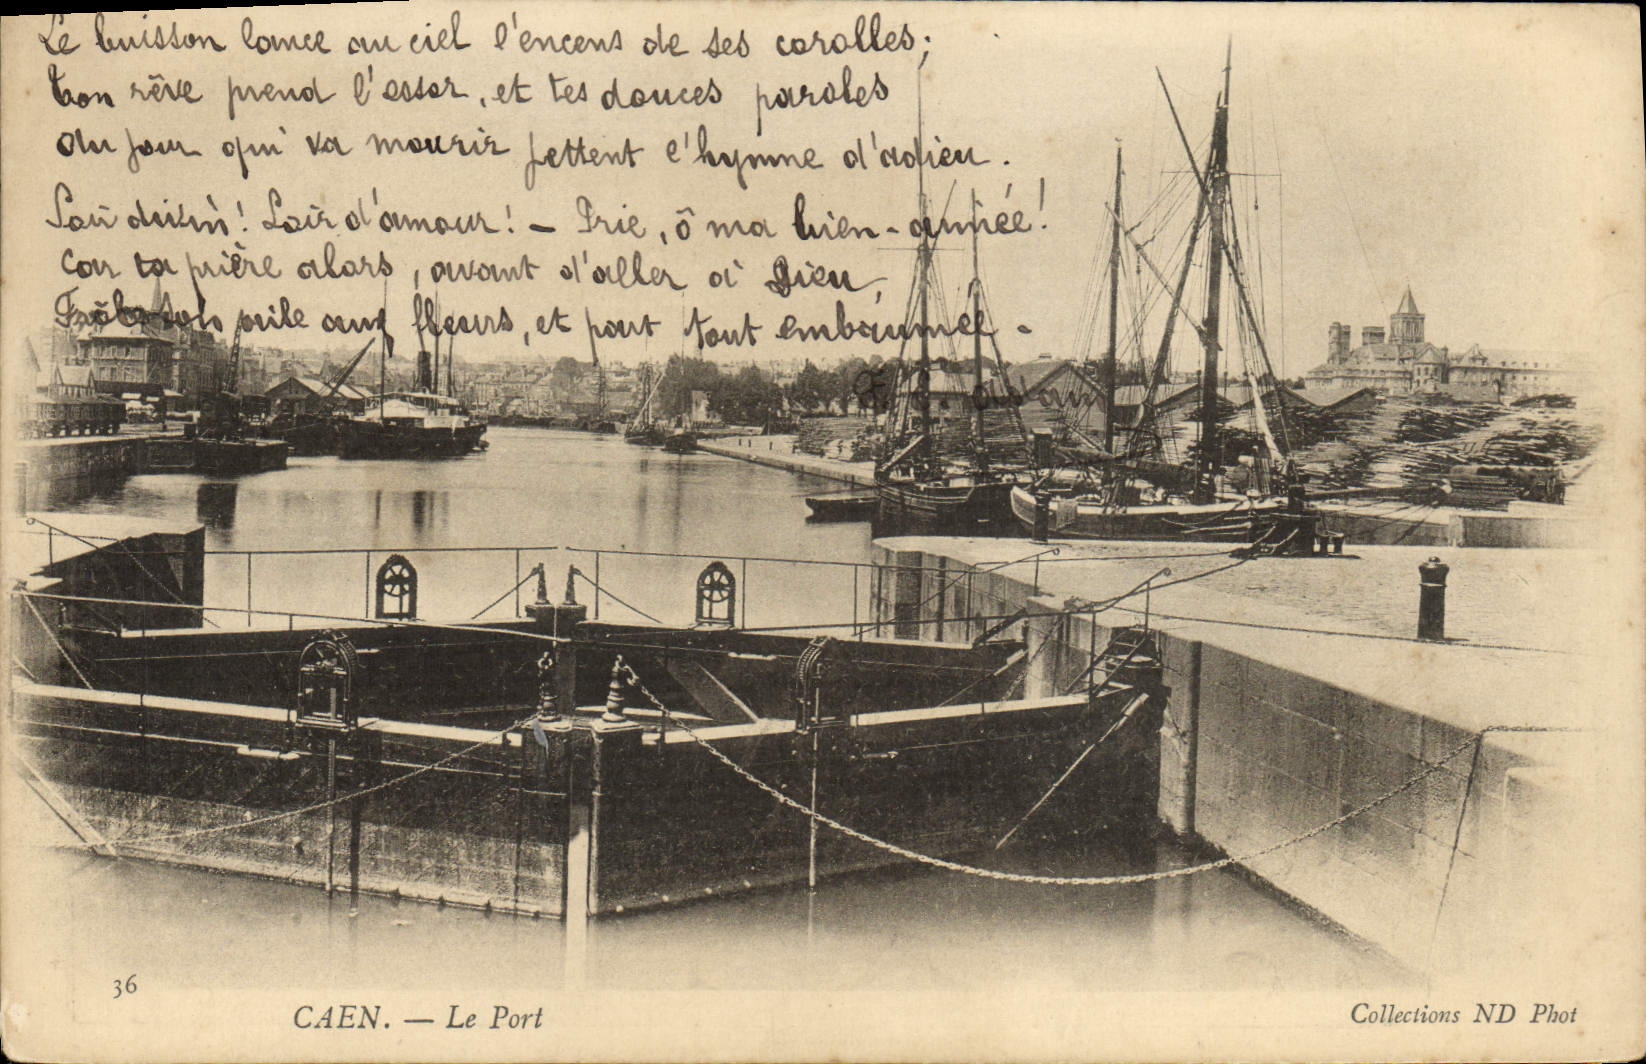 Le buisson lance au ciel l'encens de ses corolles;
ton rêve prend l'essor, et tes douces paroles
Au jour qui va mourir jettent l'hymne d'adieu.
Soir divin! Soir d'amour! - Prie, ô ma bien-aimée!
Car ta prière alors, avant d'aller à Dieu,
Frôle son aile aux fleurs, et part tout embaumée.
36
CAEN. — Le Port
Collections ND Phot